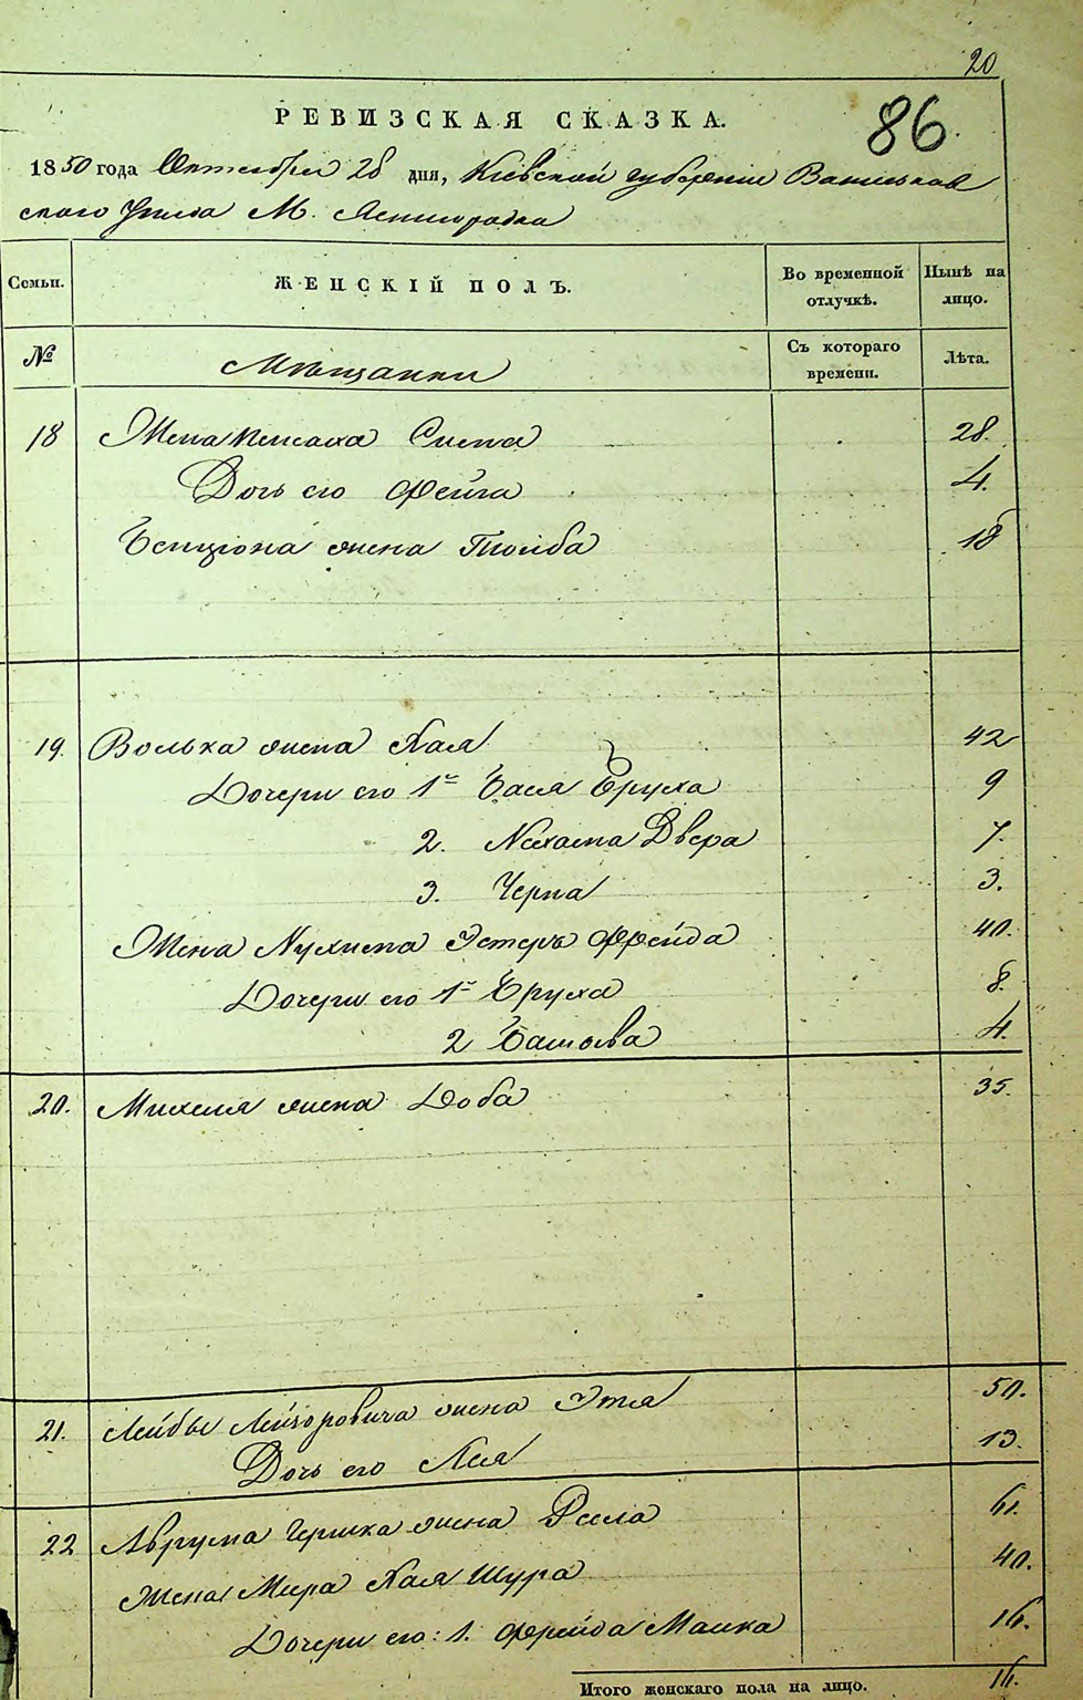 20
86.
РЕВИЗСКАЯ СКАЗКА.
1850 года Октября 28 дня, Кіевской губерніи Васильков
скаго уѣзда М. Ясногородка
Семьи. ЖЕНСКІЙ ПОЛЪ. Во временной отлучкѣ. Нынѣ на лицо.
№ Мѣщанки Съ котораго времени. Лѣта.
18 Жена Пейсаха 28.
Дочь его Фейга 4.
Бенціона жена 18
19. Волька жена Хая 42
Дочери его 1я Бася Бруха 9
2. Нехама Двера 7.
3. Черна 3.
Жена Нухима Эстеръ Фрейда 40.
Дочери его 1я Бруха 8.
2 Башева 4.
20. Михеля жена Доба 35.
21. Лейбы Лейзоровича жена Этя 50.
Дочь его Лея 13.
22 Аврума Гершка жена Рейла 61.
Жена Мира Хая Шура 40.
Дочери его: 1. Фрейда Малка 16.
Итого женскаго пола на лицо. 16.